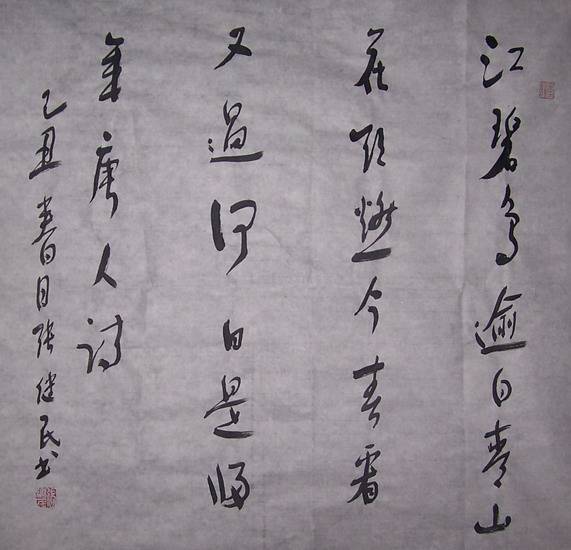 江碧鸟逾白青山
花欲燃今春看
又過何日是归
年唐人诗
乙丑春月张健民书